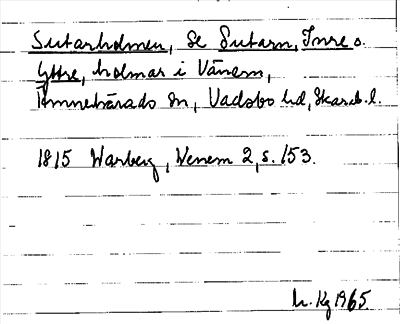 Sutarholmen, se Sutarn, Inre o.
Yttre, holmar i Vänern,
Amnehärads sn, Vadsbo hd, Skarab. l.
1815 Warberg, Wenern 2, s. 153.
1965.